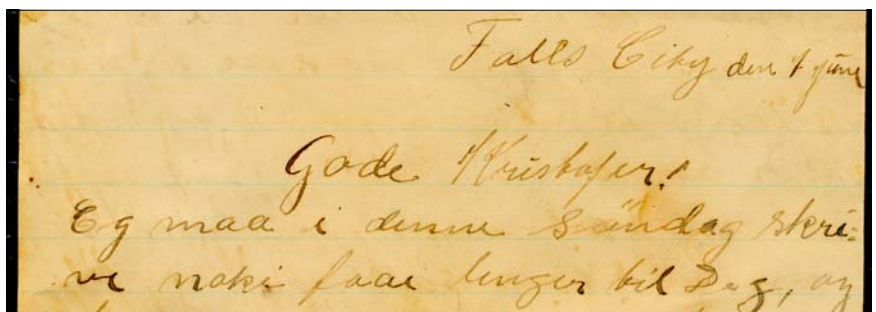 Falls City den 7 June
Gode Kristofer!
Eg maa i denne Søndag skri-
ve noki faae linger til Deg, og